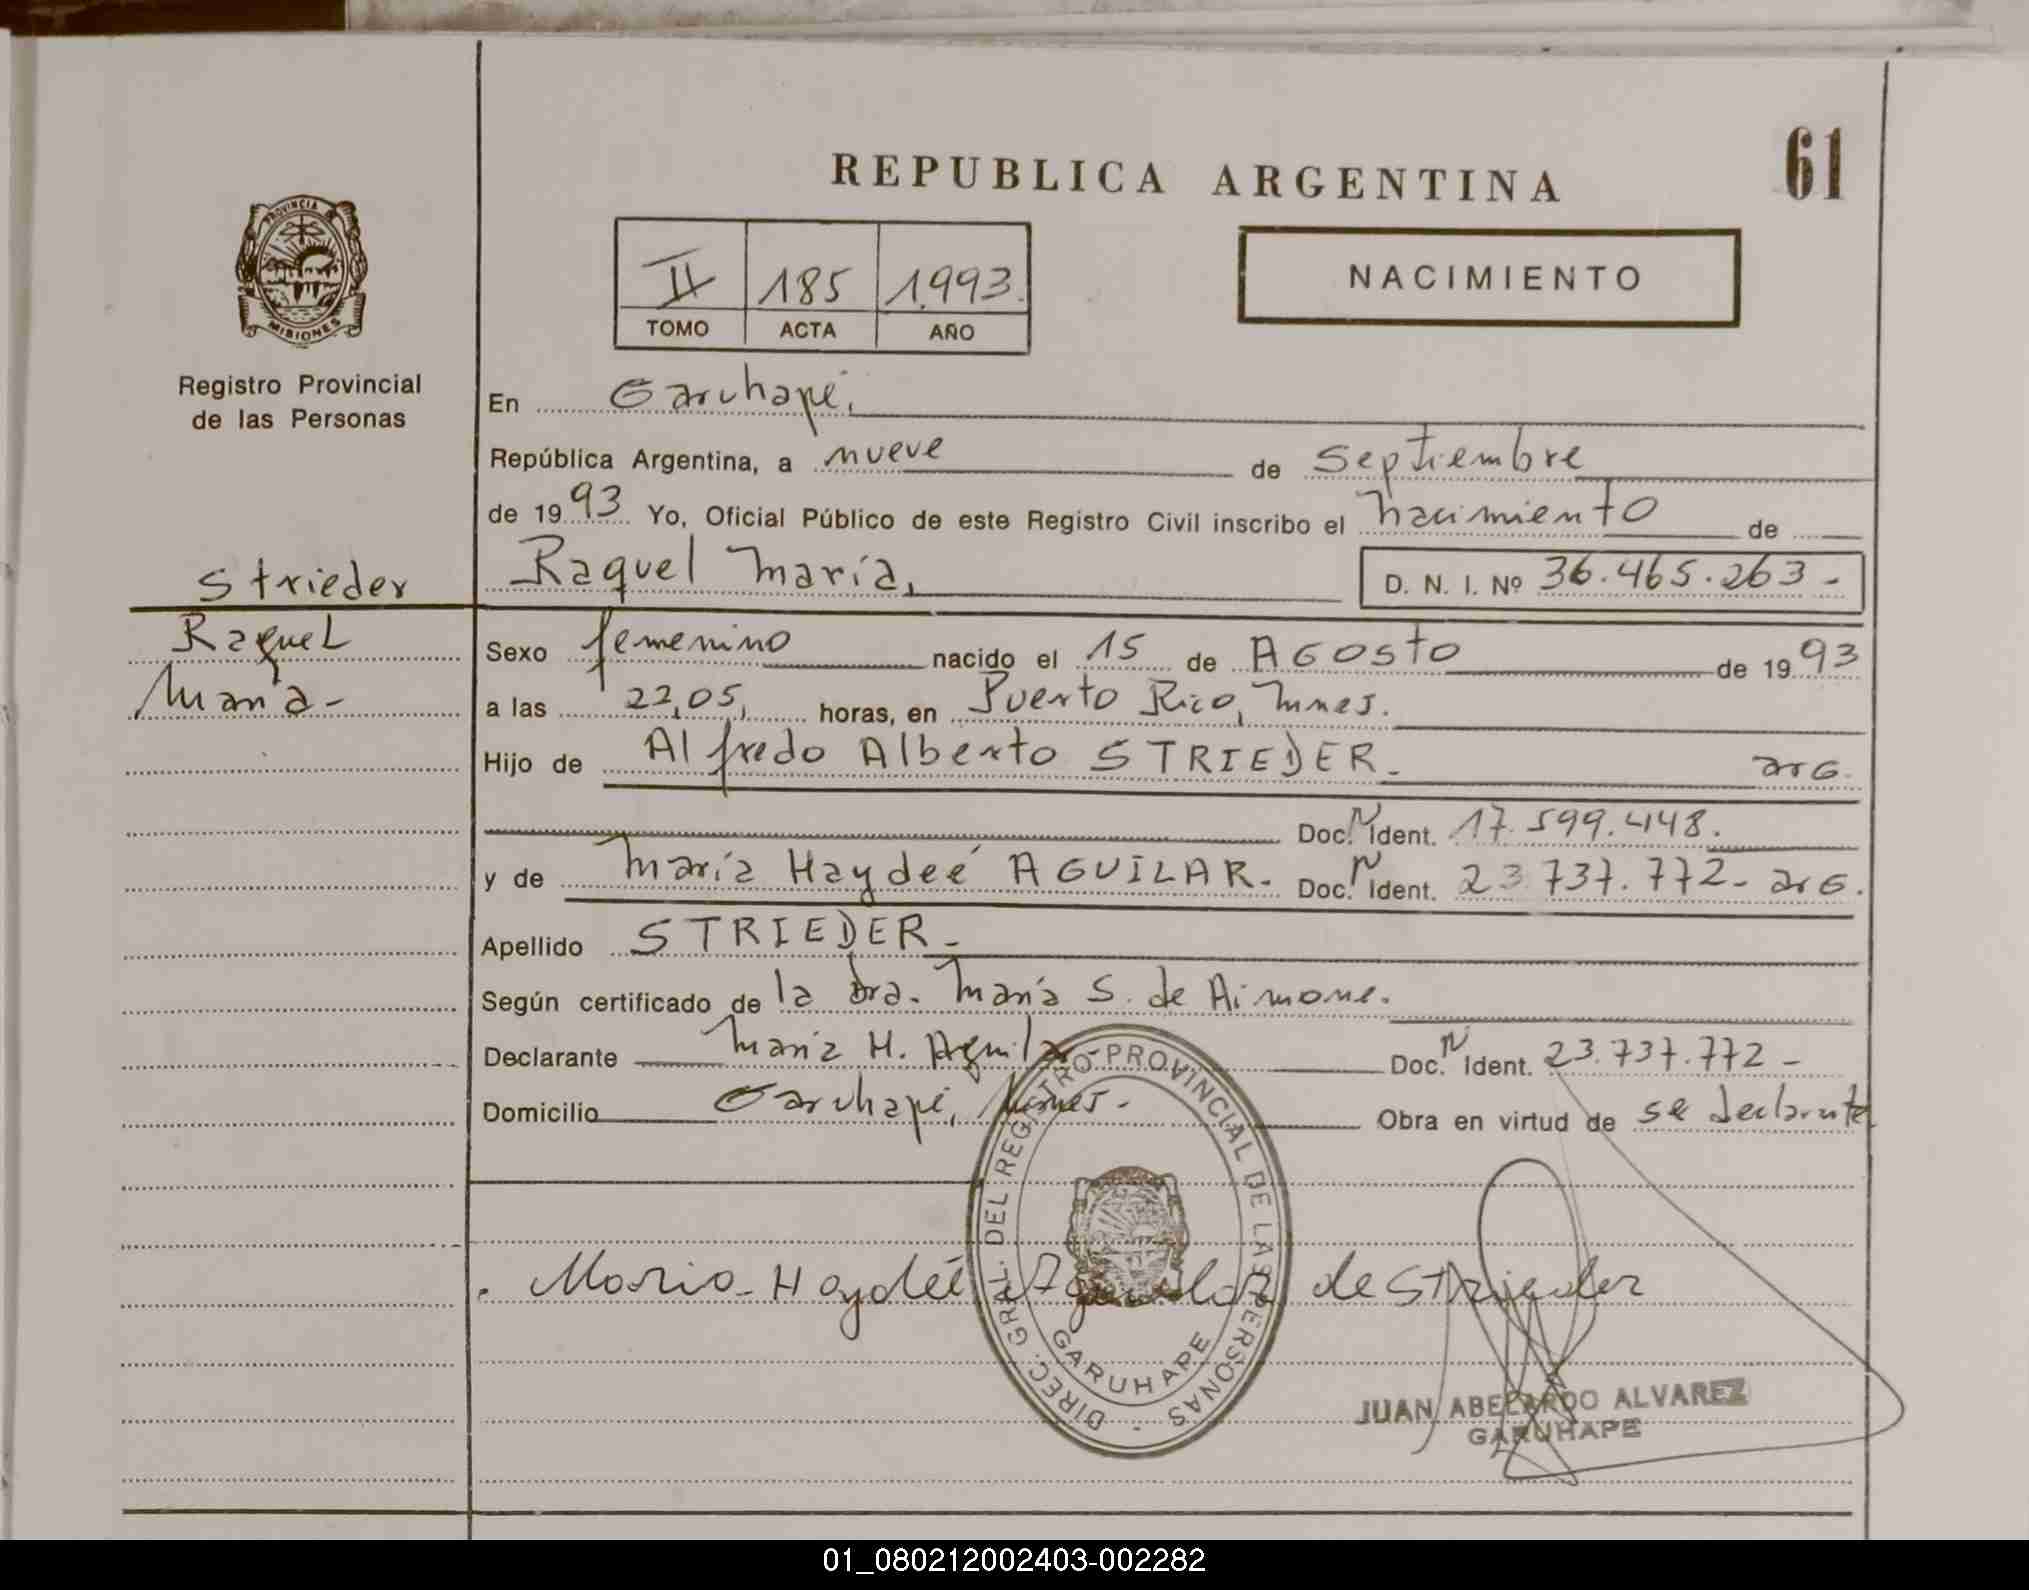 61
REPUBLICA ARGENTINA
PROVINCIA DE
MISIONES
Registro Provincial
de las Personas
II 185 1.993.
TOMO ACTA AÑO
NACIMIENTO
En Garuhapé,
República Argentina, a nueve de septiembre
de 1993 Yo, Oficial Público de este Registro Civil inscribo el nacimiento de
Raquel María, D. N. I. Nº 36.465.263-
Strieder
Raquel
María-
Sexo femenino nacido el 15 de AGOSTO de 1993
a las 22,05, horas, en Puerto Rico, Mnes.
Hijo de Alfredo Alberto STRIEDER- arG.
Doc. N Ident. 17.599.448.
y de María Haydeé AGUILAR- Doc. N Ident. 23.737.772- arG.
Apellido STRIEDER-
Según certificado de la Dra. María S. de Aimone.
Declarante María H. Aguilar Doc. N Ident. 23.737.772-
Domicilio Garuhapé, Mnes- Obra en virtud de ser declarante
DIREC. GRAL. DEL REGISTRO PROVINCIAL DE LAS PERSONAS -
GARUHAPE
Maria Haydeé Aguilar de Strieder
JUAN ABELARDO ALVAREZ
GARUHAPE
01_080212002403-002282